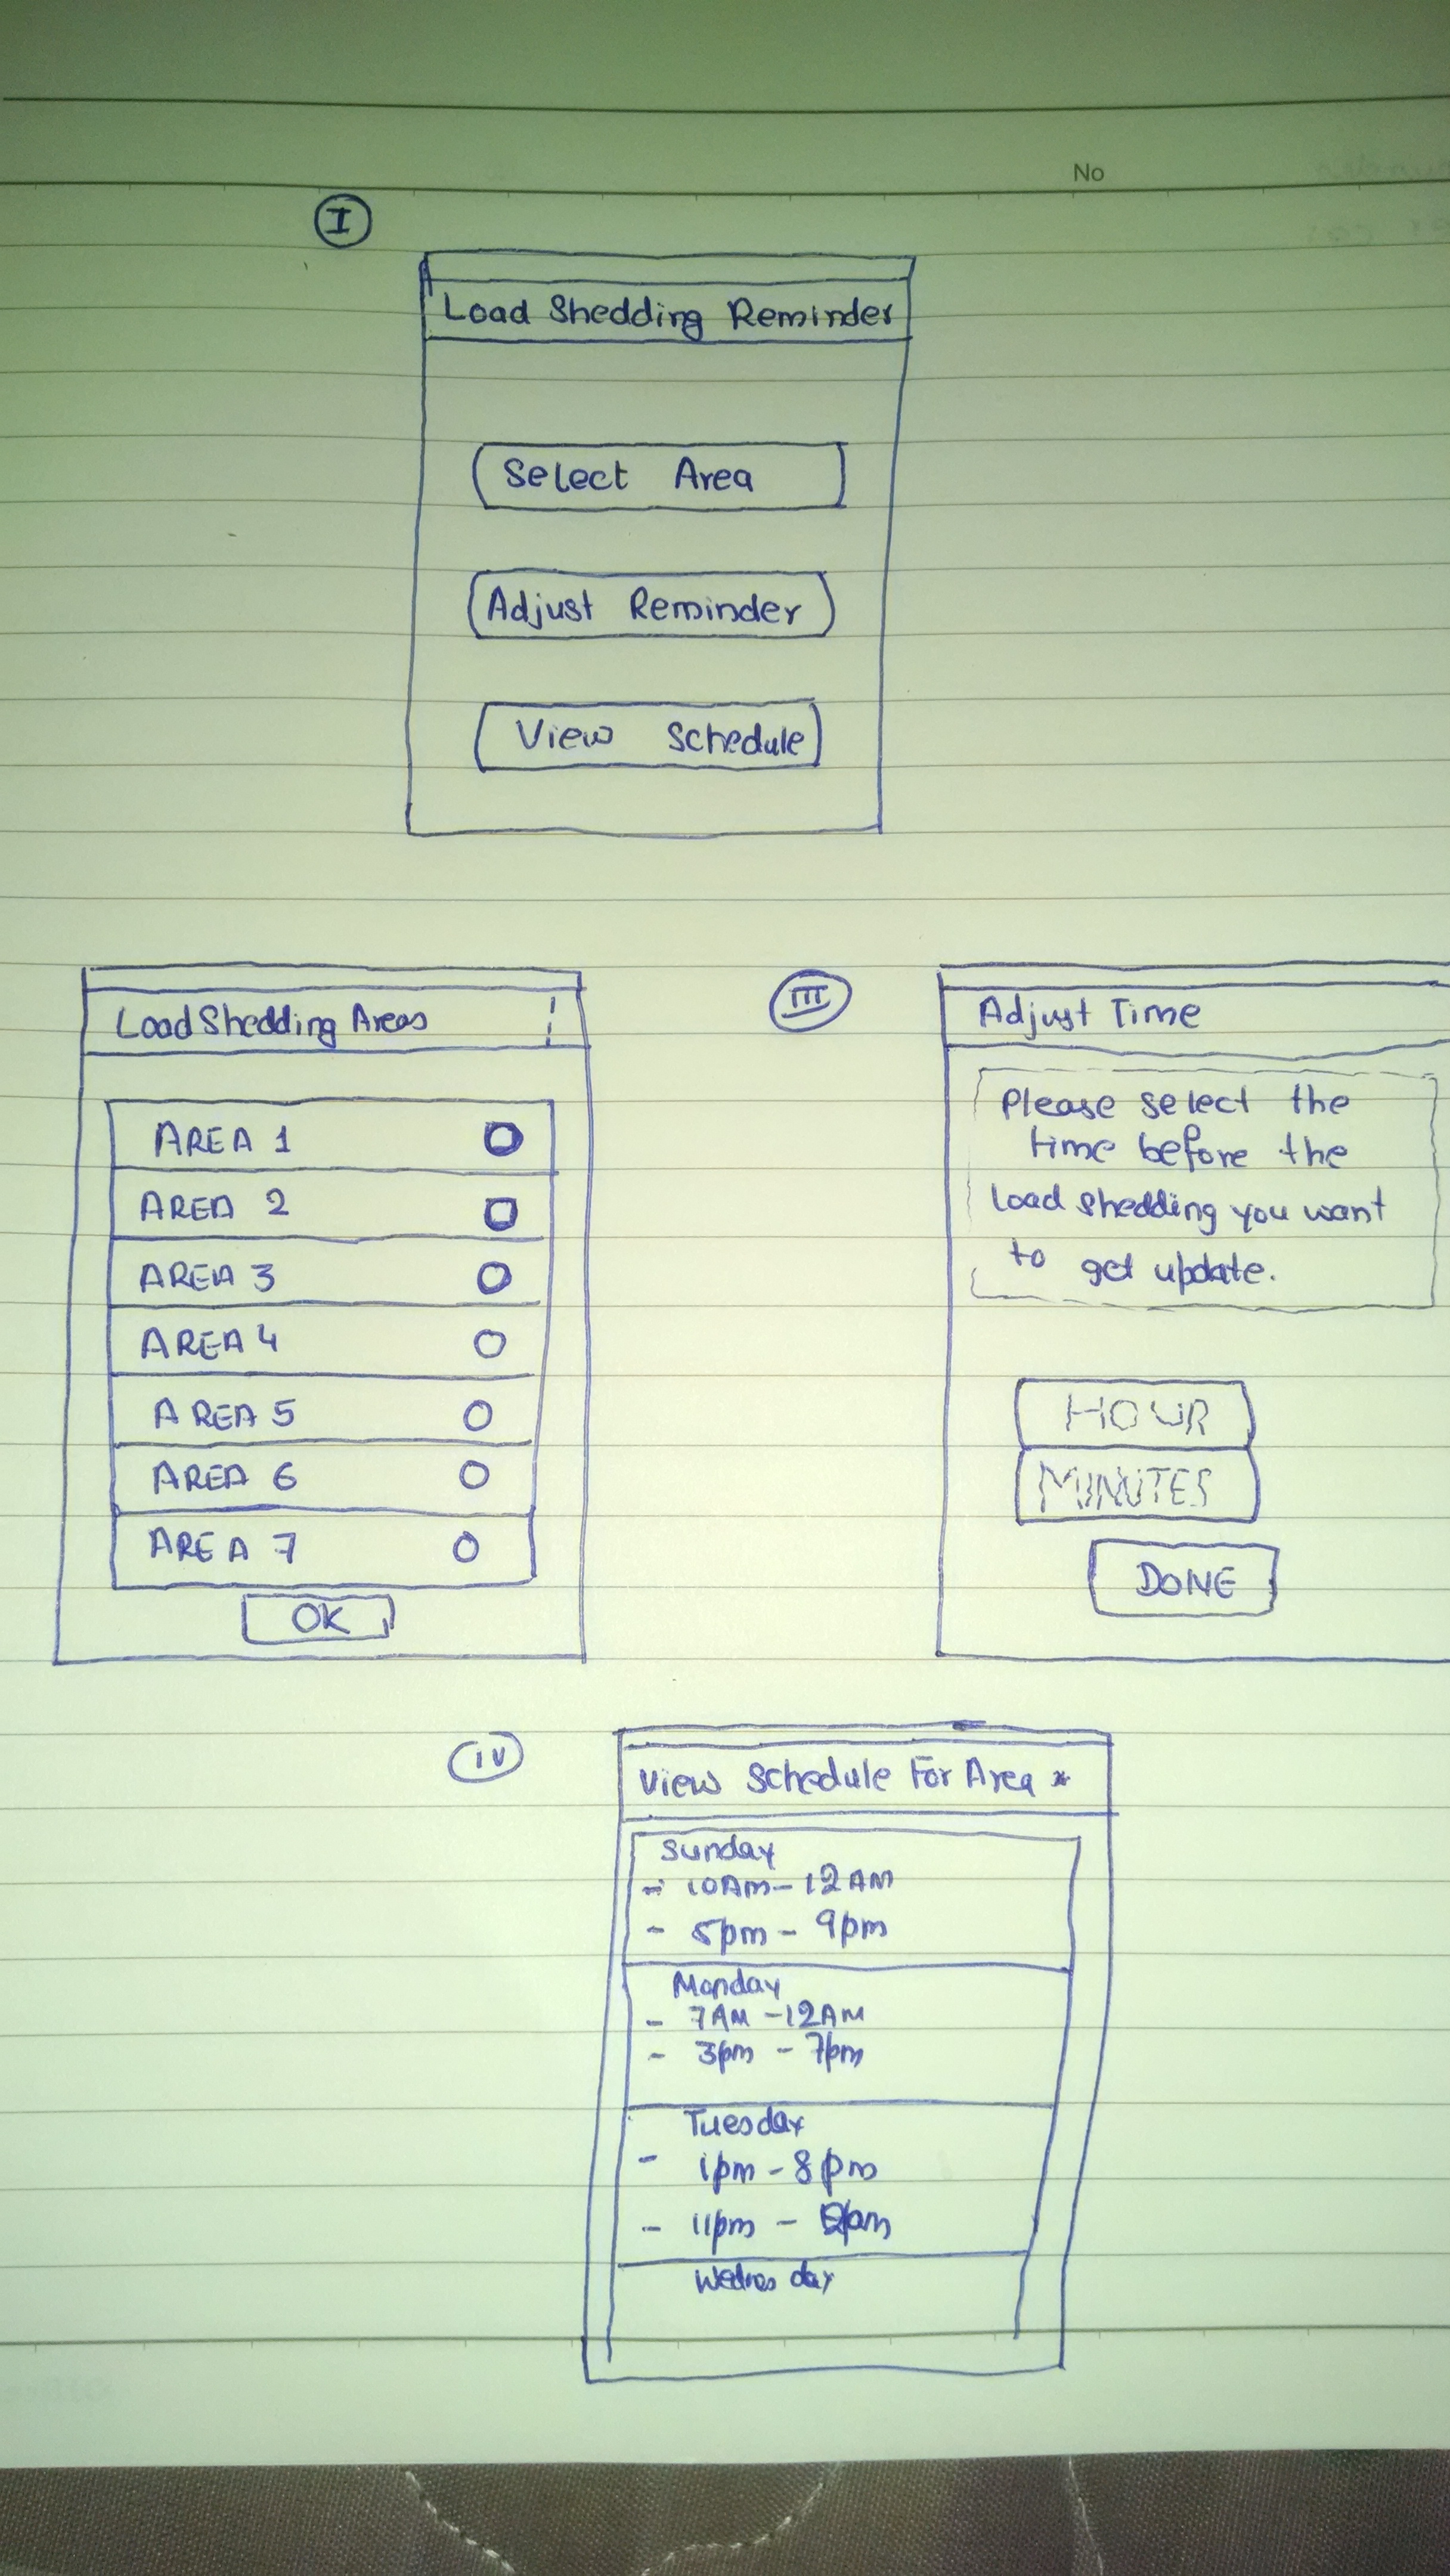 No
I
Load Shedding Reminder
Select Area
Adjust Reminder
View Schedule
Load Shedding Areas
AREA 1
AREA 2
AREA 3
AREA 4
AREA 5
AREA 6
AREA 7
OK
III
Adjust Time
Please select the
time before the
load shedding you want
to get update.
HOUR
MINUTES
DONE
iv
View Schedule For Area *
Sunday
- 10AM - 12AM
- 5pm - 9pm
Monday
- 7AM - 12AM
- 3pm - 7pm
Tuesday
- 1pm - 8pm
- 11pm -
Wednesday